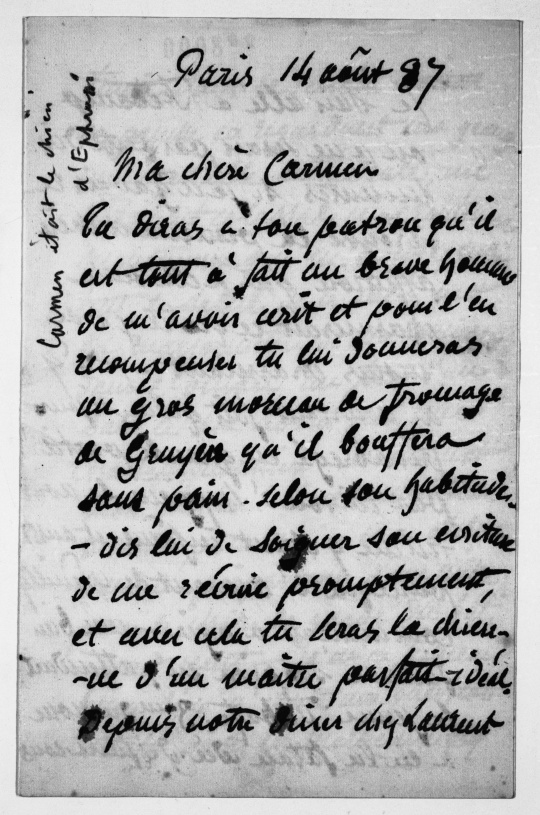 Paris 14 août 87
Carmen était le chien
d'Ephrussi
Ma chère Carmen
Tu diras à ton patron qu'il
est tout à fait un brave homme
de m'avoir écrit et pour l'en
recompenser tu lui donneras
un gros morceau de fromage
de Gruyère qu'il bouffera
sans pain - selon son habitude -
- dis lui de soigner son écriture
de me récrire promptement,
et avec cela tu seras la chien-
-ne d'un maître parfait - idéal.
Depuis notre diner chez Laurent